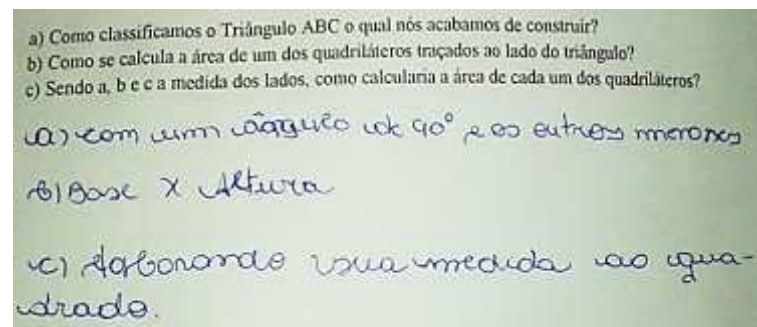 a) Como classificamos o Triângulo ABC o qual nós acabamos de construir?
b) Como se calcula a área de um dos quadriláteros traçados ao lado do triângulo?
c) Sendo a, b e c a medida dos lados, como calcularia a área de cada um dos quadriláteros?
a) com um ângulo de 90° e os outros menores
b) Base X Altura
c) dobrando sua medida ao qua-
drado.